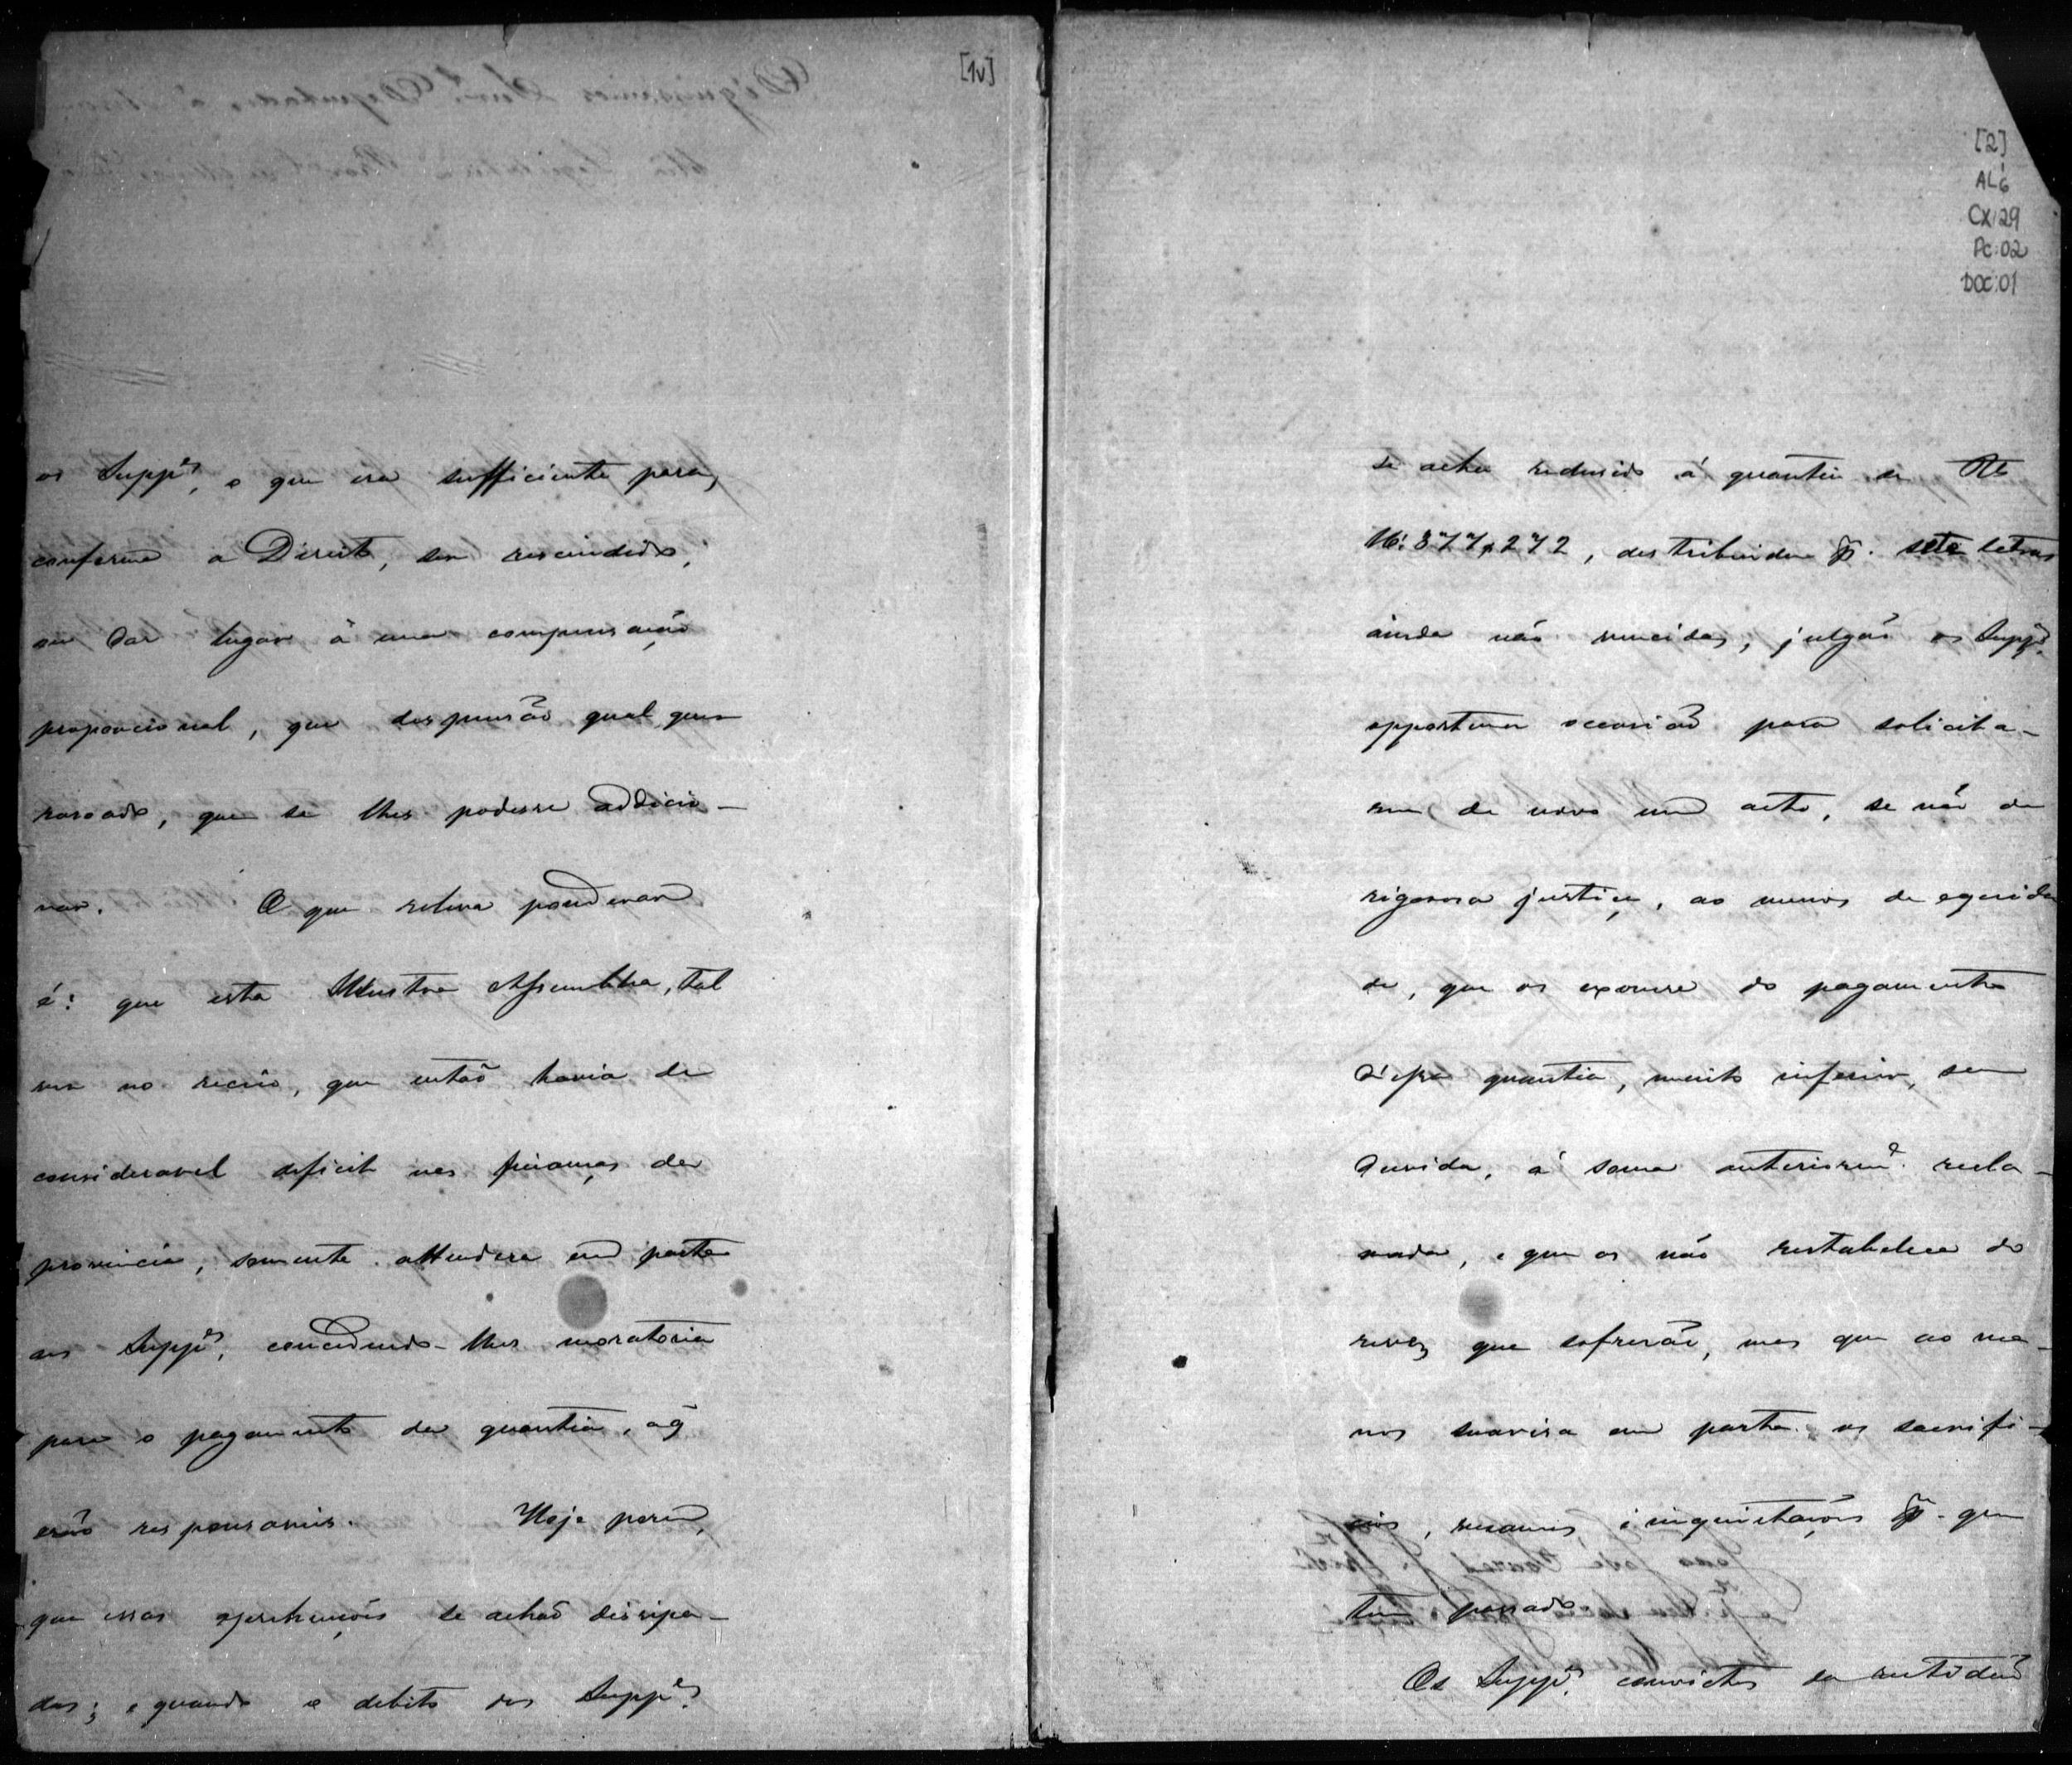 [1v]
os Supp.es, o que era sufficiente para,
conforme o Direito, ser rescindido,
ou dar lugar á uma compensação
proporcional, que dispensão qualquer
rasoado, que se lhes podesse addicio-
nar. O que releva ponderar
é: que esta Illustre Assemblea, tal
vez no receio, que então havia de
consideravel deficit nas finanças da
provincia, somente attendera em parte
aos Supp.es, concedendo-lhes moratoria
para o pagamento da quantia, a q̃
erão responsaveis. Hoje porem,
que essas apprehensões se achão dissipa-
das; e quando o debito dos Supp.es
[2]
AL6
CX:29
PC:02
DOC:01
se acha redusido á quantia de Rs
16:877$272, destribuida p. sete letras
ainda não vencidas, julgão os Supp.es
opportuna occasião para solicita-
rem de novo um acto, se não de
rigorosa justiça, ao menos de equida
de, que os exonere do pagamento
d'essa quantia, muito inferior, sem
duvida, á soma anteriorm.e recla-
mada, e que os não restabelece do
revez que sofrerão, mas que ao me-
nos suavisa em parte os sacrifi-
cios, vexames, e inquietações p. que
tem passado.
Os Supp.es convictos da rectidão